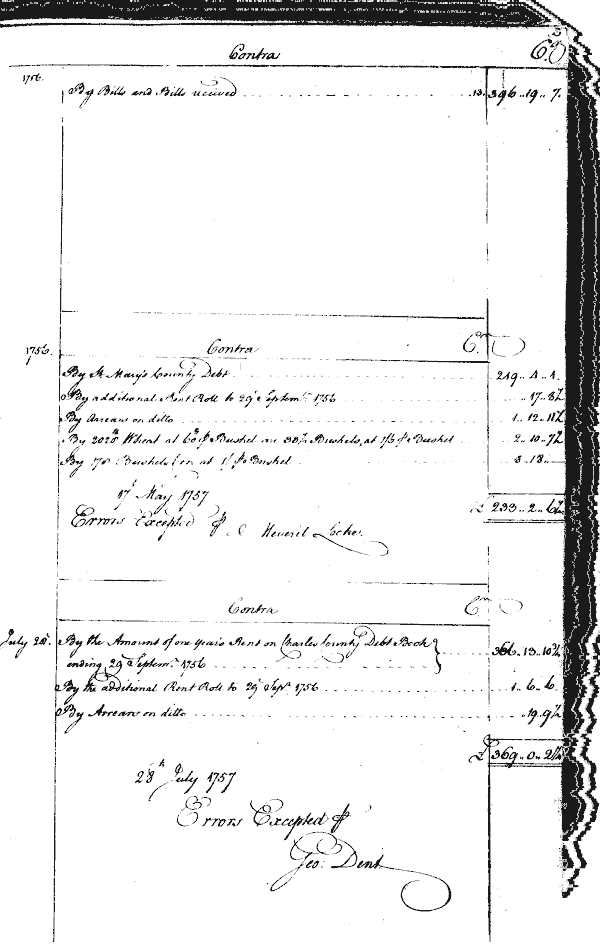 3
Contra Cr
1756. By Bills and Bills received 13. 396.. 19.. 7.
1756. Contra Cr
By St. Mary's County Debt 219.. 4.. 4.
By additional Rent Roll to 29 Septemr. 1756 .. 17.. 8½
By Arrears on ditto 1.. 12.. 11½
By Wheat at Bushel Bushels, at Bushel 2.. 10.. 7½
By 178 Bushels at 1/ Bushel 3.. 18..
17 May 1757 £ 233.. 2.. 6½
Errors Excepted P
Meveril Locke.
Contra Cr
July By the Amount of one year's Rent on Charles County Debt Book 366.. 13.. 10½
ending 29 Septemr. 1756
By the additional Rent Roll to 29 Sepr. 1756 1.. 6.. 6.
By Arrears on ditto .. 19.. 9½
£ 369.. 0.. 2½
28th July 1757
Errors Excepted P
Geo: Dent